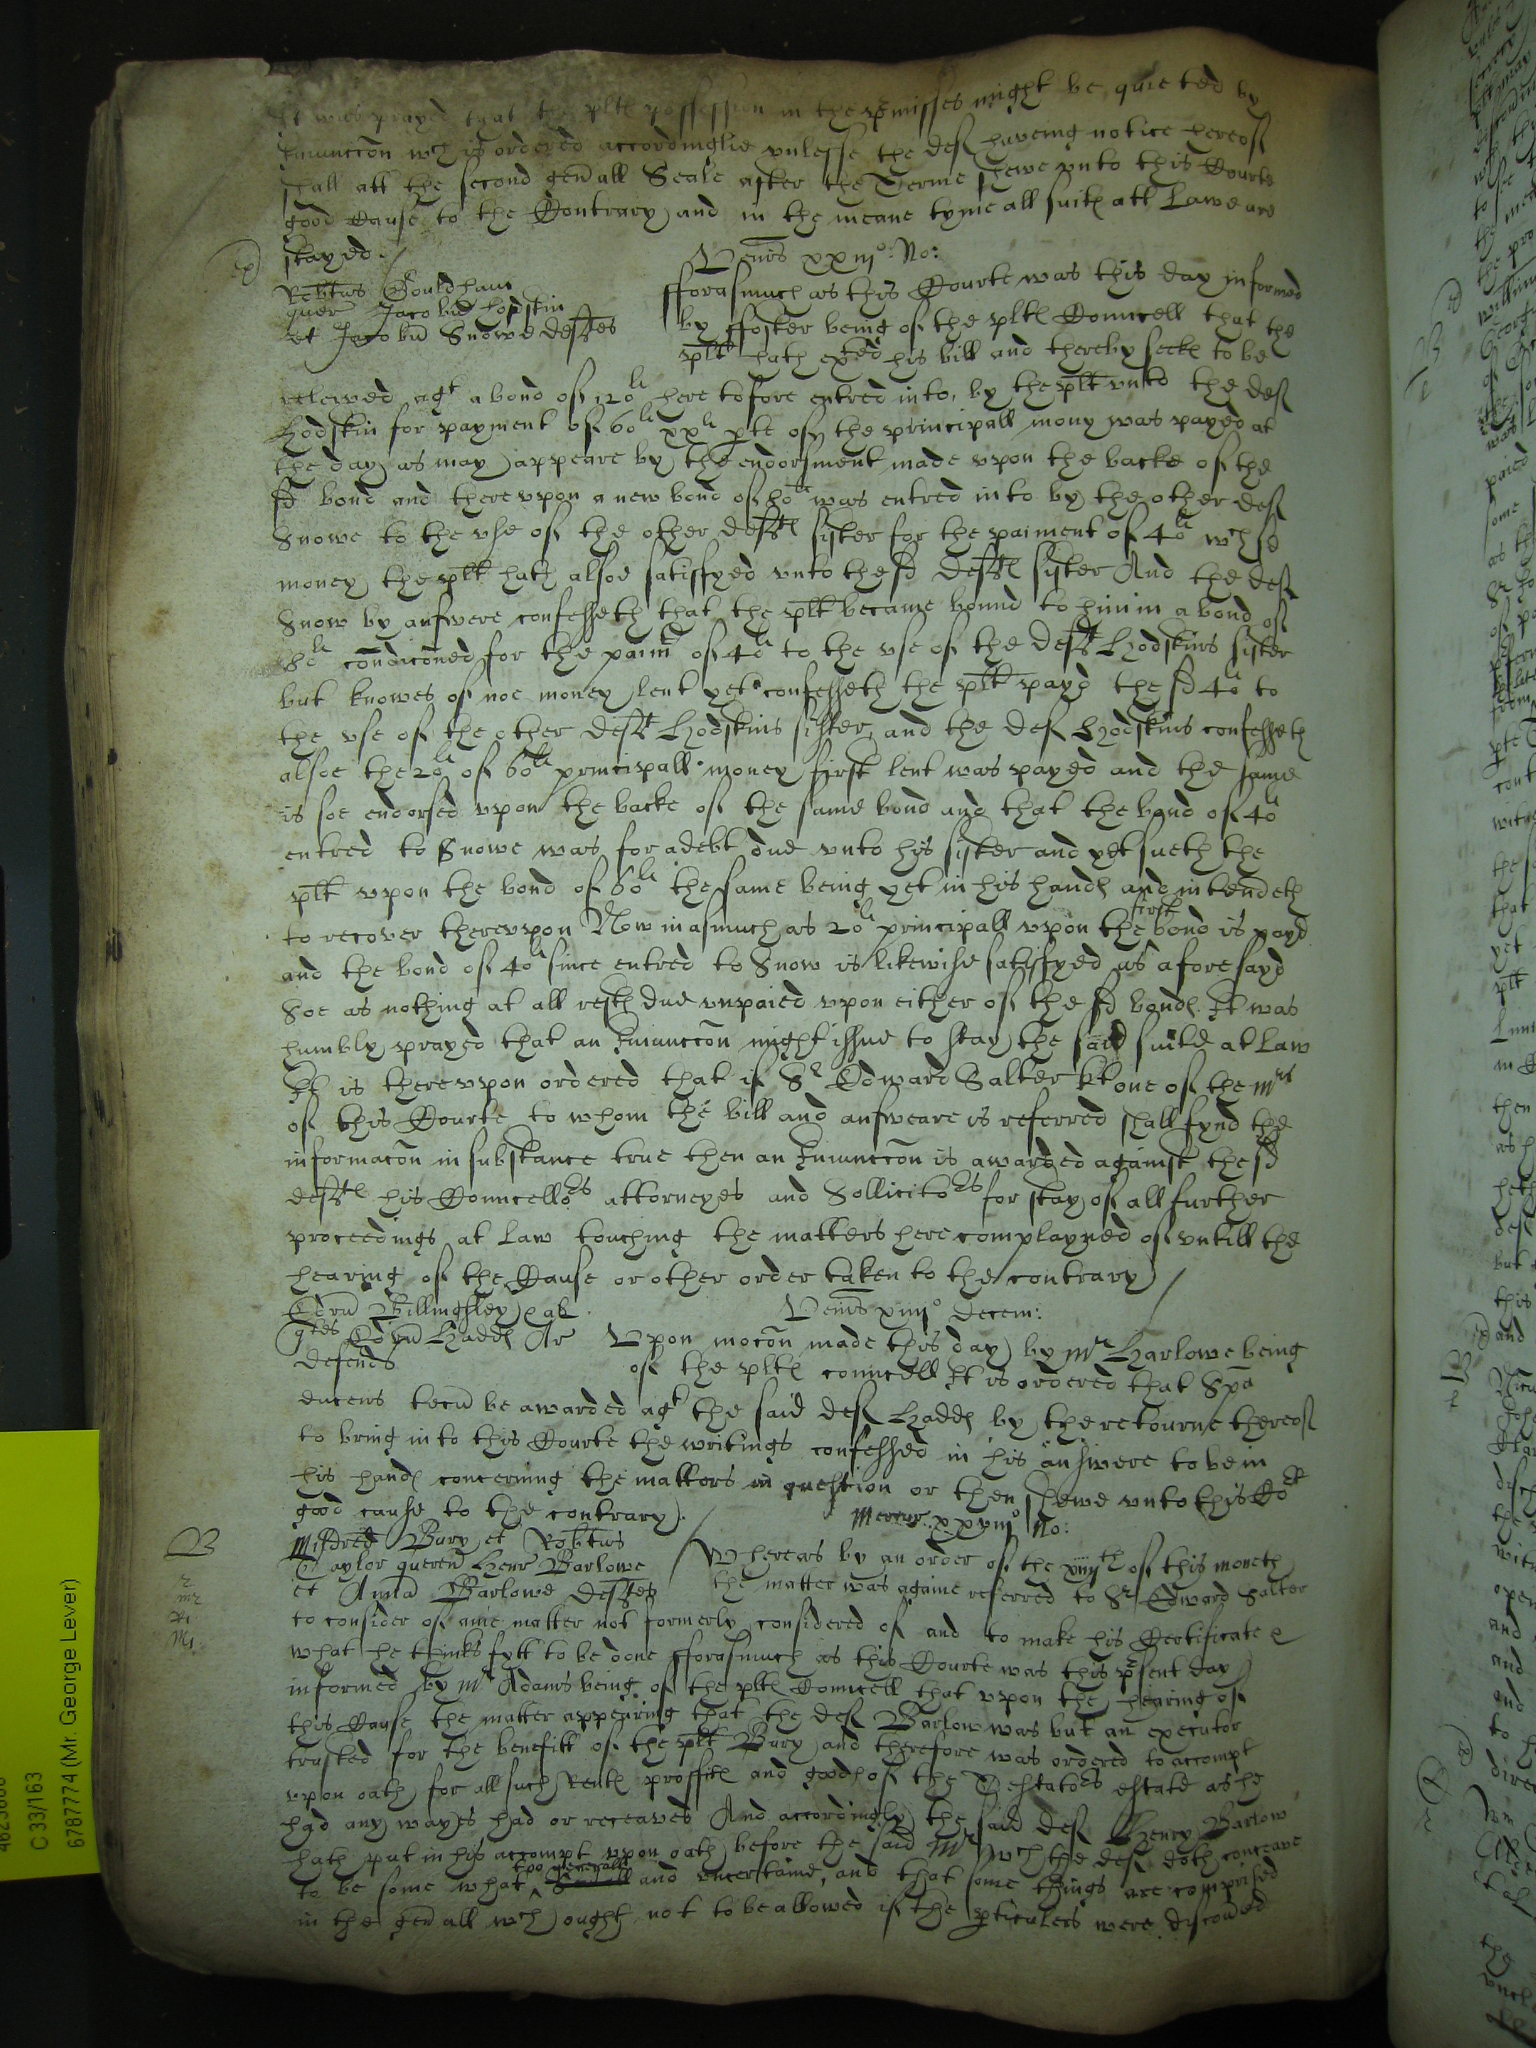 It was prayed that the plts possession in the premisses might be quieted by
Iniunccon wch is ordered accordinglie unlesse the def haveing notice hereof
shall att the second genall Seale after the Terme shewe unto this Courte
good Cause to the Contrary and in the meane tyme all suits att Lawe are
stayed.
Venis xxiijo: No:
Robtus Gouldham
quer Jacobus Hodskin
et Jacobu Snowe deftes
fforasmuch as this Courte was this day informed
by ffoster being of the plts Councell that the
plt hath exed his bill and thereby seeks to be
releived agt a bond of 120li here tofore entred into, by the plt unto the def
Hodskin for payment of 60li xxli pte of the principall mony was payed at
the day as may appeare by the endorsment made upon the backe of the
sd bond and thereupon a new bond of 80li was entred into by the other def
Snowe to the use of the other defts sister for the paiment of 40li wch sd
money the plt hath alsoe satisfyed unto the sd defts sister And the def
Snow by answere confesseth that the plt became bound to him in a bond of
80li condiconed for the paimt of 40li to the use of the deft Hodskins sister
but knowes of noe money lent yet confesseth the plt payd the sd 40li to
the use of the other deft Hodskins sister, and the def Hodskins confesseth
alsoe the 20li of 60li principall money first lent was payed and the same
is soe endorsed upon the backe of the same bond and that the bond of 40li
entred to Snowe was for a debt due unto his sister and yet sueth the
plt upon the bond of 60li the same being yet in his hands and intendeth
to recover thereupon Now inasmuch as 20li principall upon the first bond is payd
and the bond of 40li since entred to Snow is likewise satisfyed as aforesayd
Soe as nothing at all rests due unpaied upon either of the sd bonds. It was
humbly prayed that an Iniunccon might issue to stay the said suite at Law
It is thereupon ordered that if Sr Edward Salter kt one of the mrs
of this Courte to whom the bill and answeare is referred shall fynd the
informacon in substance true then an Iniunccon is awarded against the sd
defts his Councellors attorneyes and Sollicitors for stay of all further
proceedings at Law touching the matters here complayned of untill the
hearing of the Cause or other order taken to the contrary
Edru Billingsley
Venis xiiijo decem:
Edru Hadds Ar
defends
Upon mocon made this day by Mr Harlowe being
of the plts councell It is ordered that Spa
ducens tecu be awarded agt the said def Hadds by the retourne thereof
to bring into this Courte the writings confessed in his answere to be in
his hands concerning the matters in question or then shewe unto this Cort
good cause to the contrary.
Mercur xxviijo No:
Mildred Bury et Robtus
Taylor queren Henr Barlowe
et Anna Barlowe deftes
Whereas by an order of the xiiijth of this moneth
the matter was againe referred to Sr Edward Salter
to consider of anie matter not formerly considered of and to make his Certificate
what he thinks fytt to be done fforasmuch as this Courte was this psent day
informed by Mr Adams being of the plts Councell that upon the hearing of
this Cause the matter appearing that the def Barlow was but an executor
trusted for the benefitt of the plt Bury and therefore was ordered to accompt
upon oath for all such Rents proffits and goods of the Testators estate as he
had any wayes had or receaved And accordingly the said def Henry Barlow
hath put in his accompt upon oath before the said Mr wch the def doth conceave
to be some what too generall and uncertaine, and that some things are comprised
in the genall wch ought not to be allowed if the pticulers were discovred
C 33/163
6787774 (Mr. George Lever)